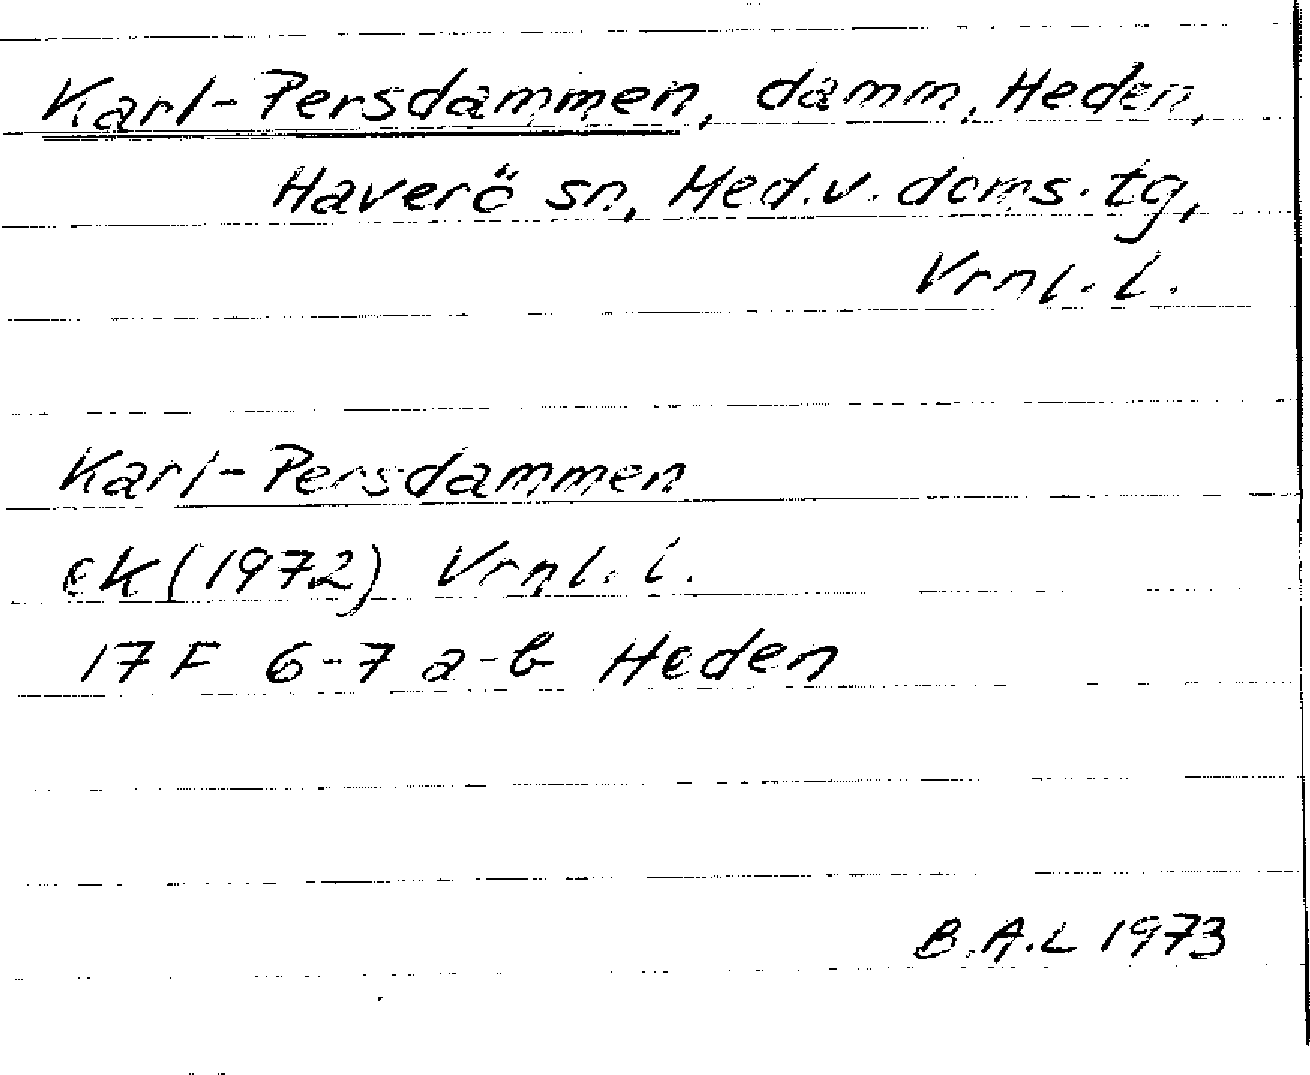 Karl-Persdammen, damm, Heden,
Haverö sn, Med.v. doms.tg,
Vrnl. l.
Karl-Persdammen
ek (1972) Vrnl. l.
17 F 6-7 a-b Heden
B.A.L 1973